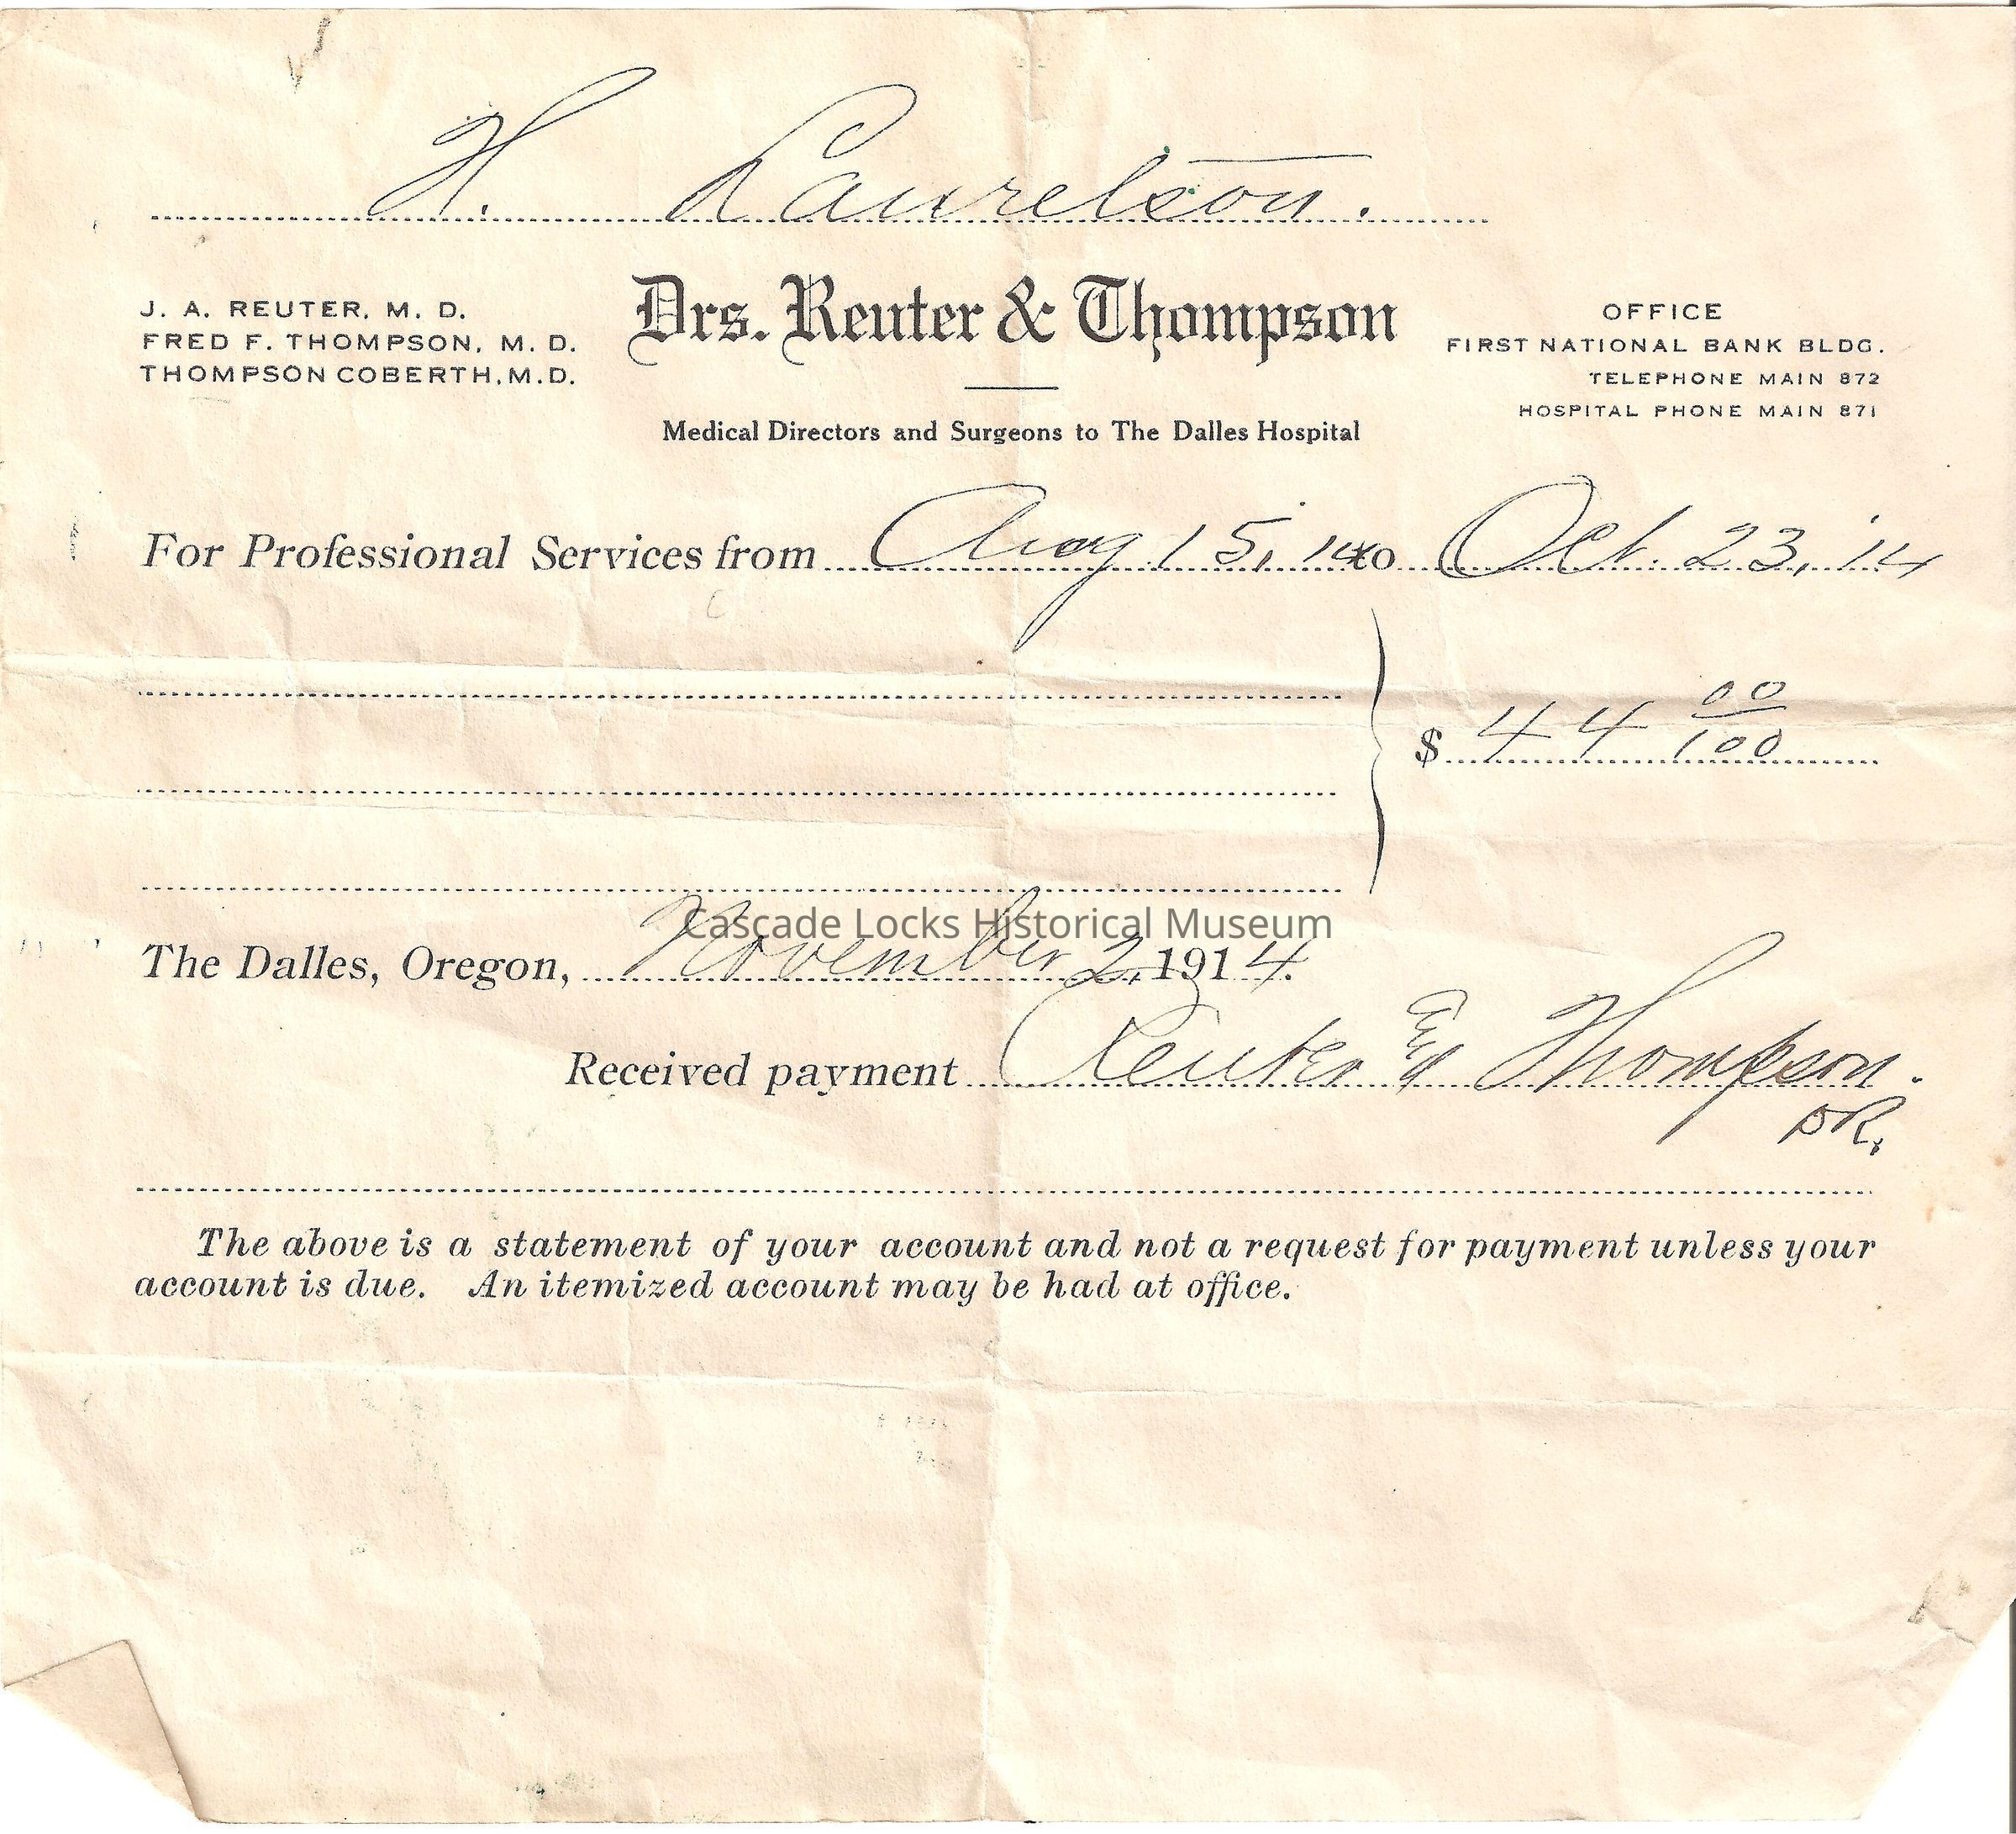 H. Laurelson.
J. A. REUTER, M. D.
FRED F. THOMPSON, M. D.
THOMPSON COBERTH, M.D.
Drs. Reuter & Thompson
Medical Directors and Surgeons to The Dalles Hospital
OFFICE
FIRST NATIONAL BANK BLDG.
TELEPHONE MAIN 872
HOSPITAL PHONE MAIN 871
For Professional Services from Aug 15, '14 to Oct. 23, '14
$ 44 00/100
Cascade Locks Historical Museum
The Dalles, Oregon, November 2, 1914.
Received payment Reuter & Thompson.
DR.
The above is a statement of your account and not a request for payment unless your
account is due. An itemized account may be had at office.